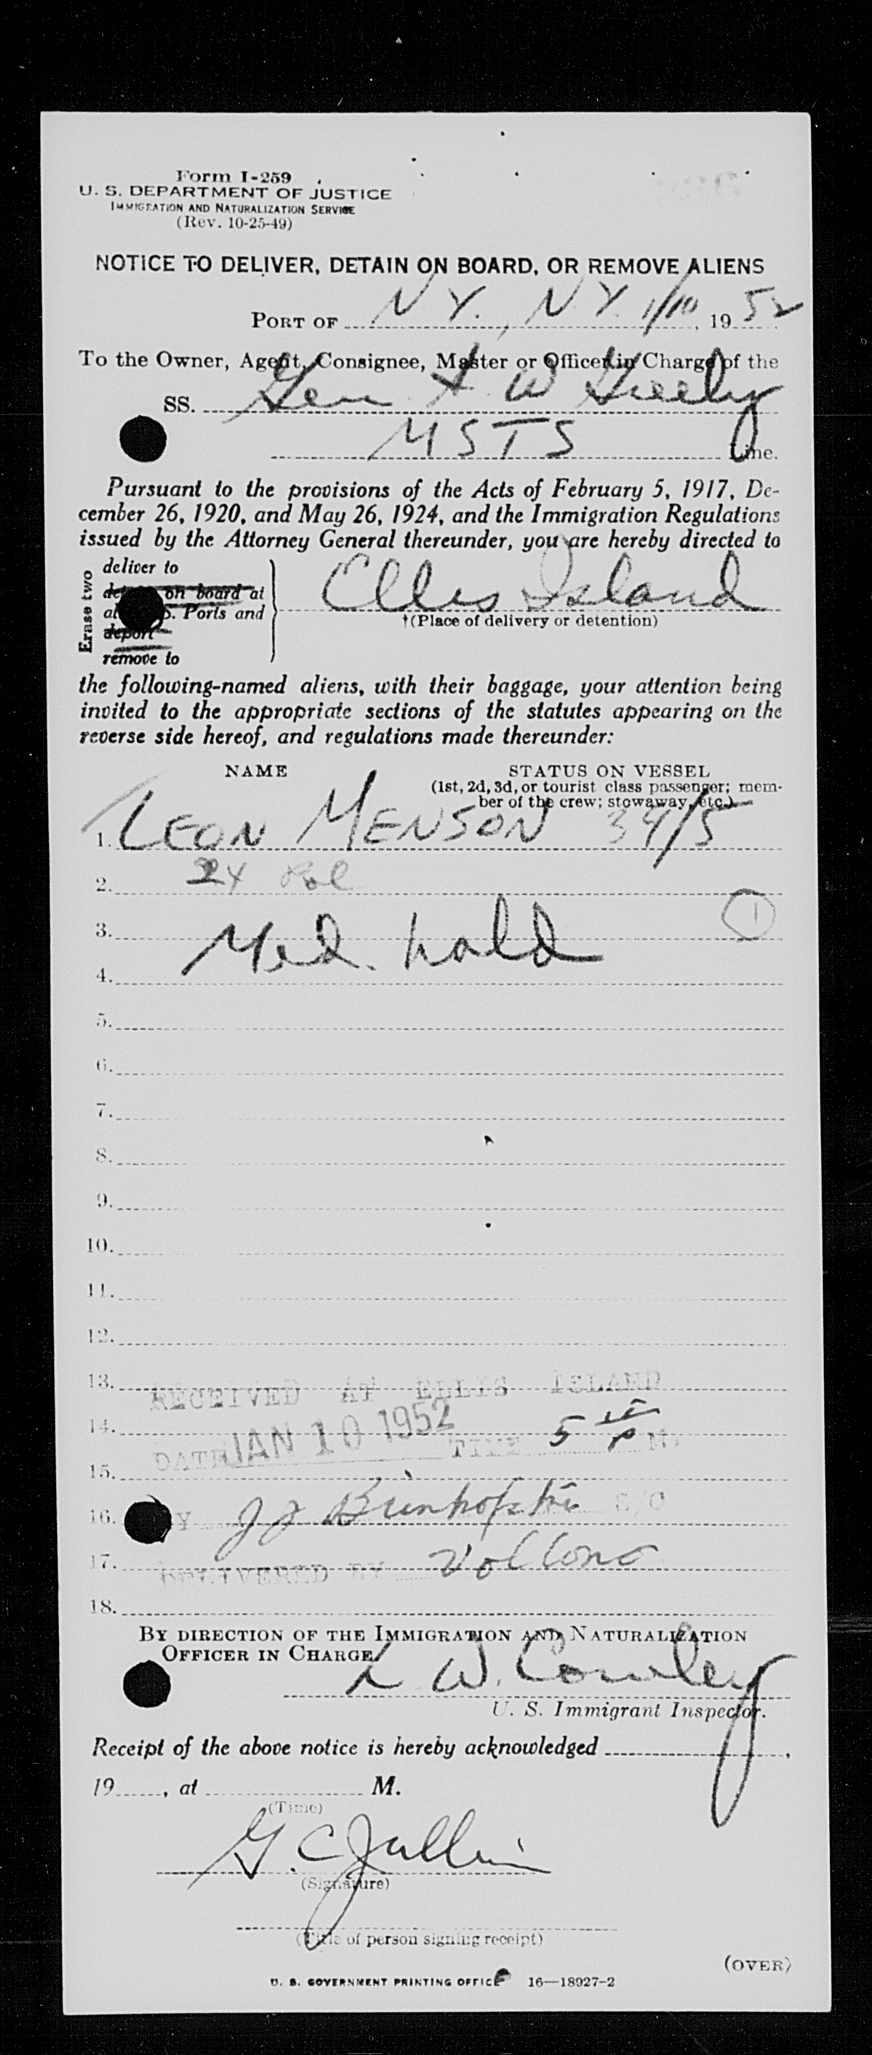 Form I-259
U. S. DEPARTMENT OF JUSTICE
IMMIGRATION AND NATURALIZATION SERVICE
(Rev. 10-25-49)
NOTICE TO DELIVER, DETAIN ON BOARD, OR REMOVE ALIENS
PORT OF N Y., N. Y. 1/10, 1952
To the Owner, Agent, Consignee, Master or Officer in Charge of the
SS. Gen A W Greely
MSTS Line.
Pursuant to the provisions of the Acts of February 5, 1917, De-
cember 26, 1920, and May 26, 1924, and the Immigration Regulations
issued by the Attorney General thereunder, you are hereby directed to
Erase two
deliver to
on board at
Ports and
deport
remove to
Ellis Island
†(Place of delivery or detention)
the following-named aliens, with their baggage, your attention being
invited to the appropriate sections of the statutes appearing on the
reverse side hereof, and regulations made thereunder:
NAME STATUS ON VESSEL
(1st, 2d, 3d, or tourist class passenger; mem-
ber of the crew; stowaway, etc.)
1. LEON MENSON 34/5
2. 24 Pol
3. Med. hold 1
4.
5.
6.
7.
8.
9.
10.
11.
12.
13. RECEIVED AT ELLIS ISLAND
14. DATE JAN 10 1952 TIME 5 15 P M.
15.
16. BY J J S/O
17. DELIVERED BY
18.
BY DIRECTION OF THE IMMIGRATION AND NATURALIZATION
OFFICER IN CHARGE
L W. Conley
U. S. Immigrant Inspector.
Receipt of the above notice is hereby acknowledged ,
19 , at M.
(Time)
G. C.
(Signature)
(Title of person signing receipt)
(OVER)
U. S. GOVERNMENT PRINTING OFFICE 16—18927-2